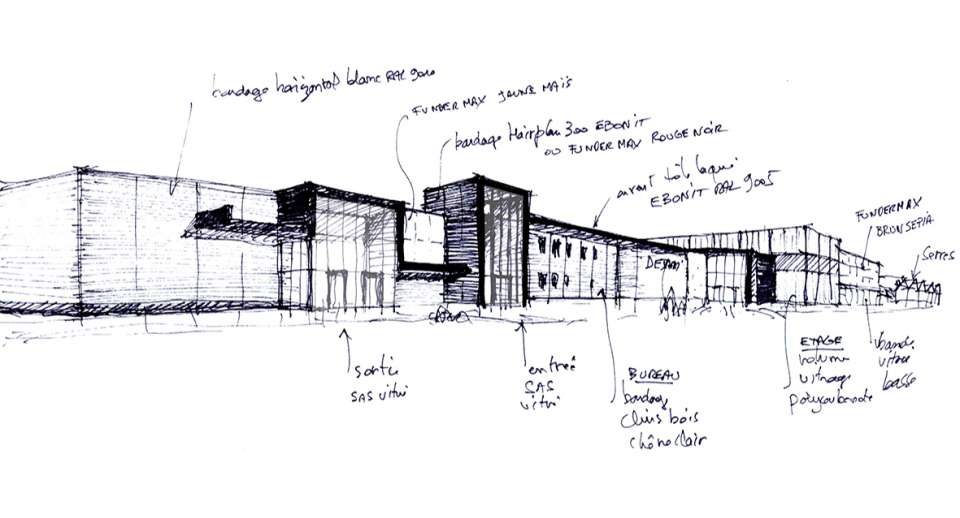 bardage horizontal blanc RAL 9010
FUNDERMAX JAUNE MAÏS
bardage Hairplan 300 EBONIT
ou FUNDERMAX ROUGE NOIR
auvent tôle laquée
EBONIT RAL 9005
FUNDERMAX
BRONSEPIA
Serres
sortie
SAS vitré
entrée
SAS
vitré
BUREAU
bardage
clins bois
chêne clair
ETAGE
volume
vitrage
polycarbonate
bande
vitrée
basse